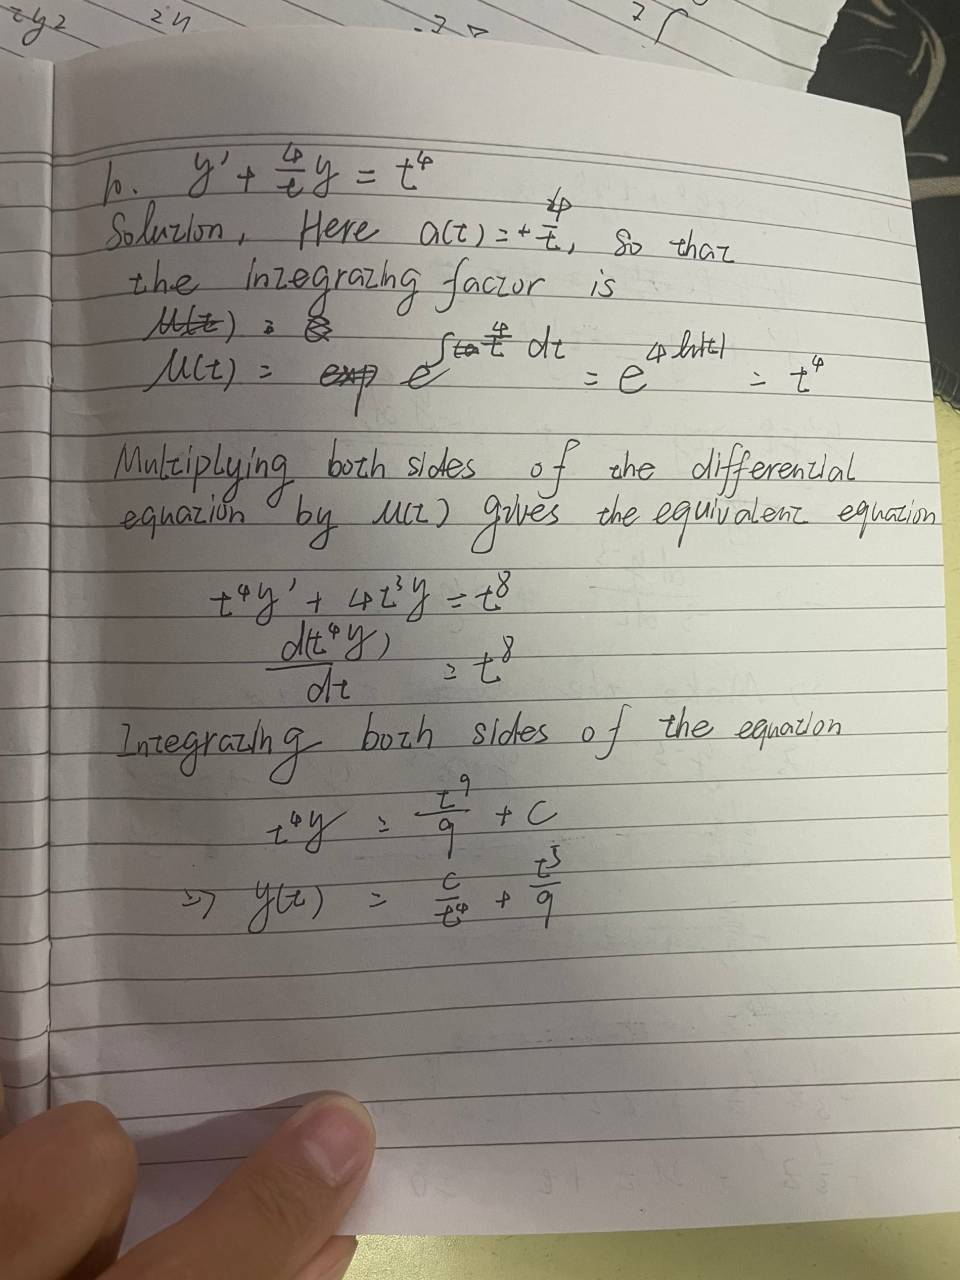 b. y' + 4/t y = t^4
Soluzion, Here a(t) = + 4/t, So that
the inzegrazing factor is
M(t) = e^∫ 4/t dt = e^4 ln|t| = t^4
Mulziplying both sides of the differenzial
equazion by M(t) gives the equivalenz equazion
t^4y' + 4t^3y = t^8
d(t^4y)/dt = t^8
Inzegrazing both sides of the equazion
t^4y = t^9/9 + C
=> y(t) = c/t^4 + t^5/9